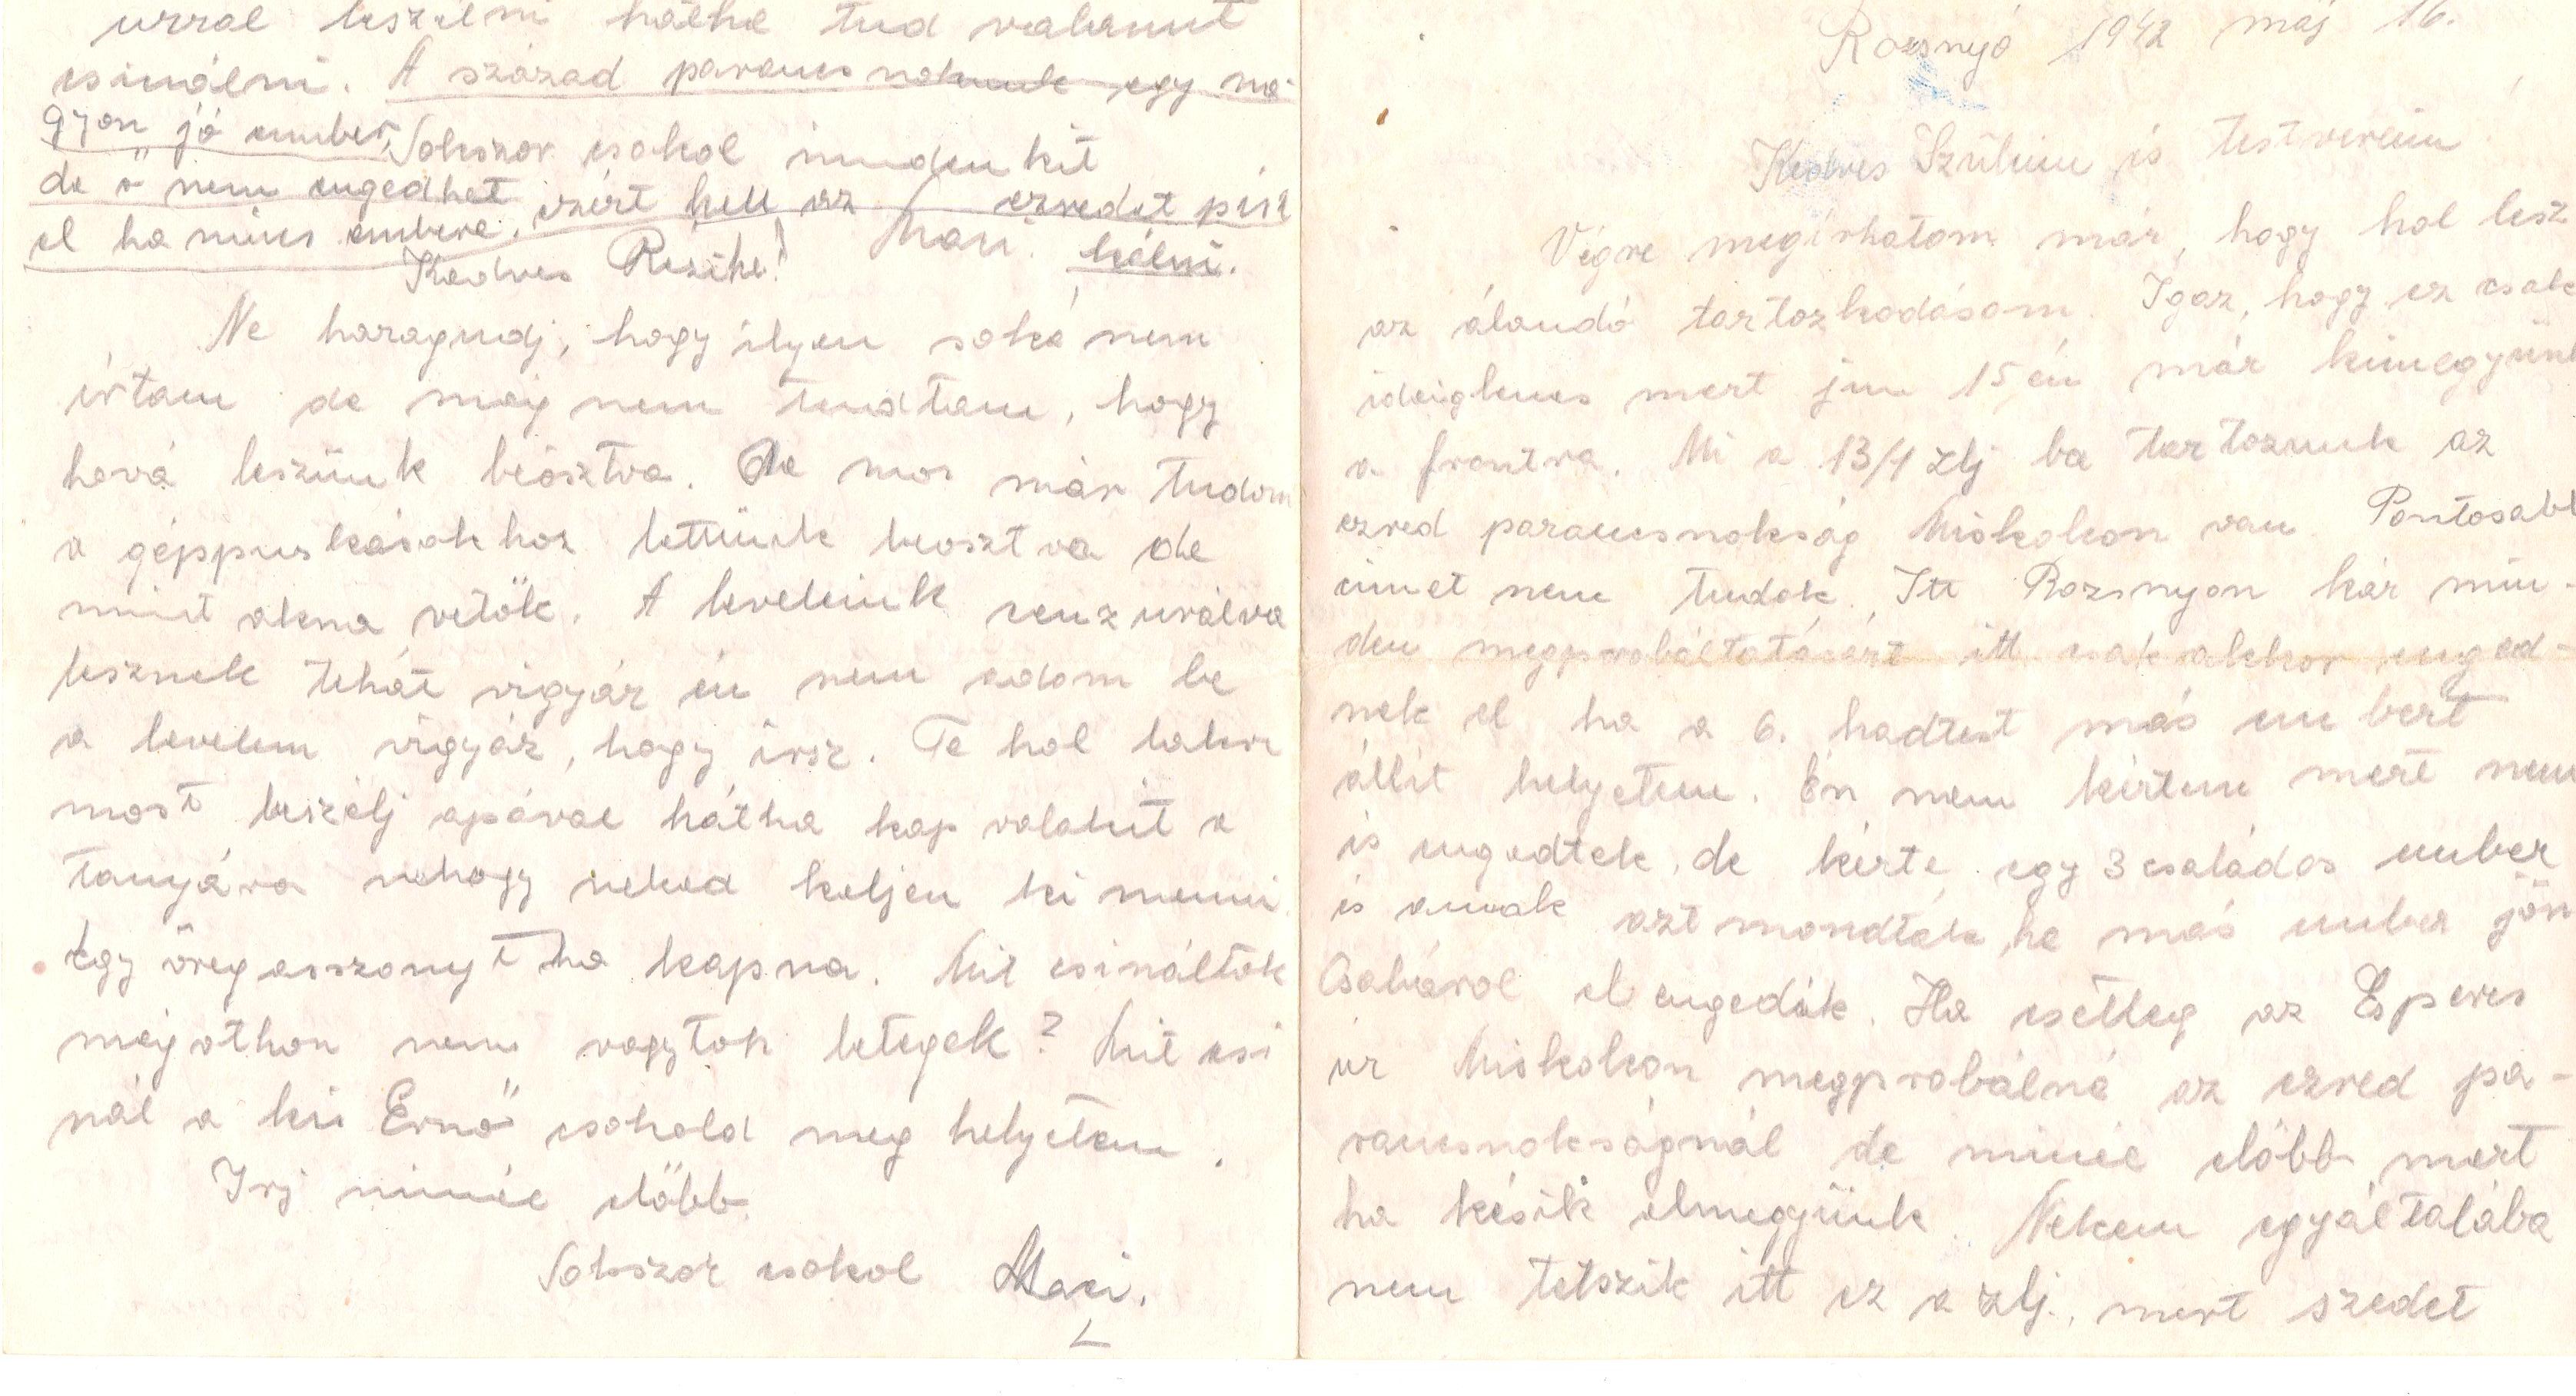 Rozsnyó 1942 máj 16.
Kedves Szüleim és testvereim
Végre megirhatom már, hogy hol lesz
az álandó tartozkodásom. Igaz, hogy ez csak
ideiglenes mert jun 15 én már kimegyünk
a frontra. Mi a 13/1 zlj ba tartozunk az
ezred parancsnokság Miskolcon van. Pontosabb
cimet nem tudok. Itt Rozsnyon kár min-
den megprobáltatásért itt csak akkor enged-
nek el ha a 6. hadtest más embert
állit helyetem. Én nem kértem mert nem
is engedtek, de kérte egy 3 családos ember
is annak azt mondták, ha más ember jön
Csabárol elengedik. Ha esetleg az Esperes
úr Miskolcon megprobálná az ezred pa-
rancsnokságnál de minél előbb mert
ha késik elmegyünk. Nekem egyáltalába
nem tetszik itt ez a zlj., mert szedet
urral beszélni hátha tud valamit
csinálni. A század parancsnokunk egy na-
gyon jó ember,
de ő nem engedhet
el ha nincs embere. ezért kell az ezredet pisz
kálni.
Sokszor csokol mindenkit
Maci.
Kedves Rezike!
Ne haragudj, hogy ilyen soká nem
írtam de még nem tudtam, hogy
hová leszünk beosztva. De mos már tudom
a géppuskásokhoz lettünk beosztva de
mint akna vetők. A leveleink cenzurálva
lesznek tehát vigyáz én nem adom be
a levelem vigyáz, hogy irsz. Te hol laksz
most beszélj apával hátha kap valakit a
tanyára nehogy neked keljen ki menni.
Egy öregasszonyt ha kapna. Mit csináltok
még othon nem vagytok betegek? Mit csi
nál a kis Ernő csokold meg helyetem.
Irj minél előbb
Sokszor csokol Maci.